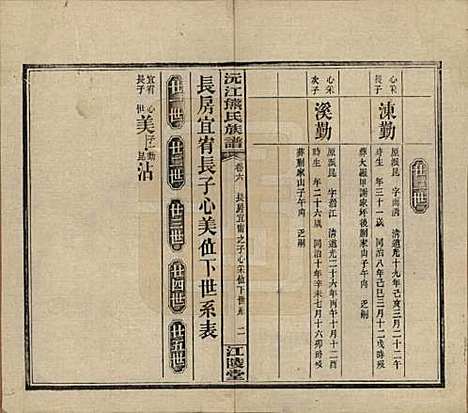 廿二世
心宋長子
涑勤
原派昆 字雨清 清道光十九年己亥三月二十二午
時生 年三十一歲 同治八年己巳三月十二戌時殁
葬大磁甲謝家坪後卯山子午向 乏嗣
心宋次子
溪勤
原派昆 字湖江 清道光二十六年丙午十月十二酉
時生 年二十六歲 同治十年辛未七月十六卯時殁
葬謝家山子午向 乏嗣
沅江熊氏族譜
卷六 長房宜宥之子心宋位下世系 二
江陵堂
長房宜宥長子心美位下世系表
廿一世 廿二世 廿三世 廿四世 廿五世
宜宥長子
心美
子一 勤昆
沾